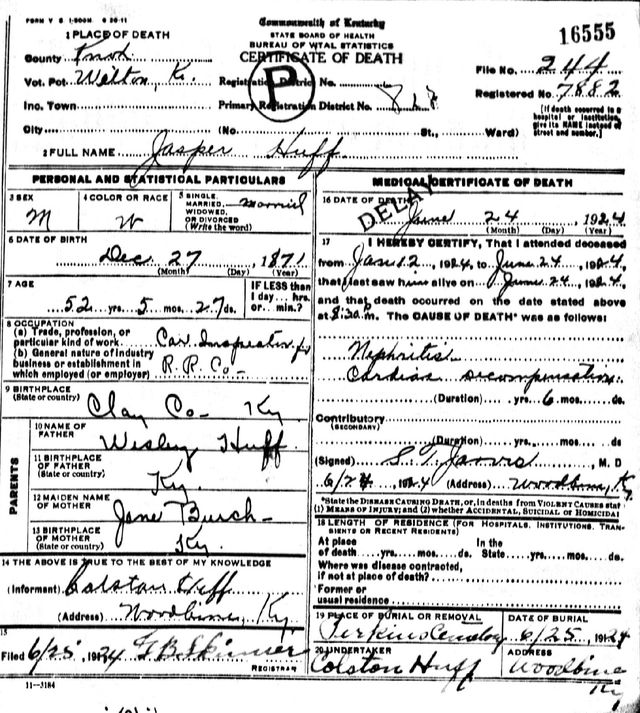 FORM V S 1-500M 6 20-11
Commonwealth of Kentucky
STATE BOARD OF HEALTH
BUREAU OF VITAL STATISTICS
CERTIFICATE OF DEATH
16555
1 PLACE OF DEATH
County Knox
Vot. Pct. Wilton, Ky.
Inc. Town
City (No. St., Ward)
Registration District No.
Primary Registration District No.
P
File No. 244
Registered No. 7882
[If death occurred in a hospital or institution, give its NAME instead of street and number.]
2 FULL NAME Jasper Huff
PERSONAL AND STATISTICAL PARTICULARS
3 SEX M
4 COLOR OR RACE W
5 SINGLE, MARRIED, WIDOWED, OR DIVORCED (Write the word) Married
6 DATE OF BIRTH
Dec 27 1871
(Month) (Day) (Year)
7 AGE
52 yrs. 5 mos. 27 ds.
IF LESS than 1 day... hrs. or... min.?
8 OCCUPATION
(a) Trade, profession, or particular kind of work Car Inspector for
(b) General nature of industry business or establishment in which employed (or employer) R.R. Co-
9 BIRTHPLACE
(State or country) Clay Co- Ky.
PARENTS
10 NAME OF FATHER Wesley Huff
11 BIRTHPLACE OF FATHER (State or country) Ky.
12 MAIDEN NAME OF MOTHER Jane Burch-
13 BIRTHPLACE OF MOTHER (State or country) Ky.
14 THE ABOVE IS TRUE TO THE BEST OF MY KNOWLEDGE
(Informant) Colston Huff
(Address) Woodbine, Ky.
15
Filed 6/25, 1924 G B Skinner
REGISTRAR
11-3184
MEDICAL CERTIFICATE OF DEATH
DELAY
16 DATE OF DEATH
June 24, 1924
(Month) (Day) (Year)
17 I HEREBY CERTIFY, That I attended deceased
from Jan 12, 1924, to June 24, 1924,
that I last saw him alive on June 24, 1924,
and that death occurred on the date stated above
at 8:30 m. The CAUSE OF DEATH* was as follows:
Nephritis
Cardiac decompensation
(Duration) yrs. 6 mos. ds
Contributory
(SECONDARY)
(Duration) yrs. mos. ds
(Signed) S. T. Jarvis, M. D
6/24 1924 (Address) Woodbine, Ky
*State the DISEASE CAUSING DEATH, or, in deaths from VIOLENT CAUSES stat
(1) MEANS OF INJURY; and (2) whether ACCIDENTAL, SUICIDAL or HOMICIDAL
18 LENGTH OF RESIDENCE (FOR HOSPITALS, INSTITUTIONS, TRANSIENTS OR RECENT RESIDENTS)
At place of death yrs. mos. ds. In the State yrs. mos. ds.
Where was disease contracted, if not at place of death?
Former or usual residence
19 PLACE OF BURIAL OR REMOVAL
Perkins Cemetery
DATE OF BURIAL
6/25, 1924
20 UNDERTAKER
Colston Huff
ADDRESS
Woodbine Ky